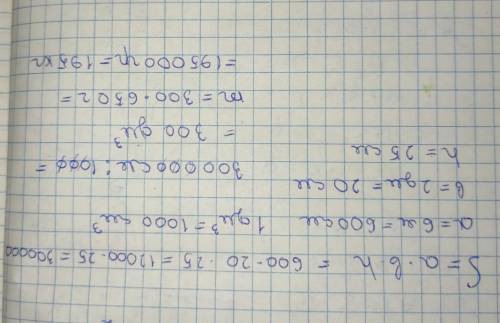 S = a · b · h = 600 · 20 · 25 = 12000 · 25 = 300000
a = 6м = 600см 1 дм³ = 1000 см³
b = 2дм = 20 см 300000 см : 1000 =
h = 25 см = 300 дм³
m = 300 · 650г =
= 195000 гр = 195 кг